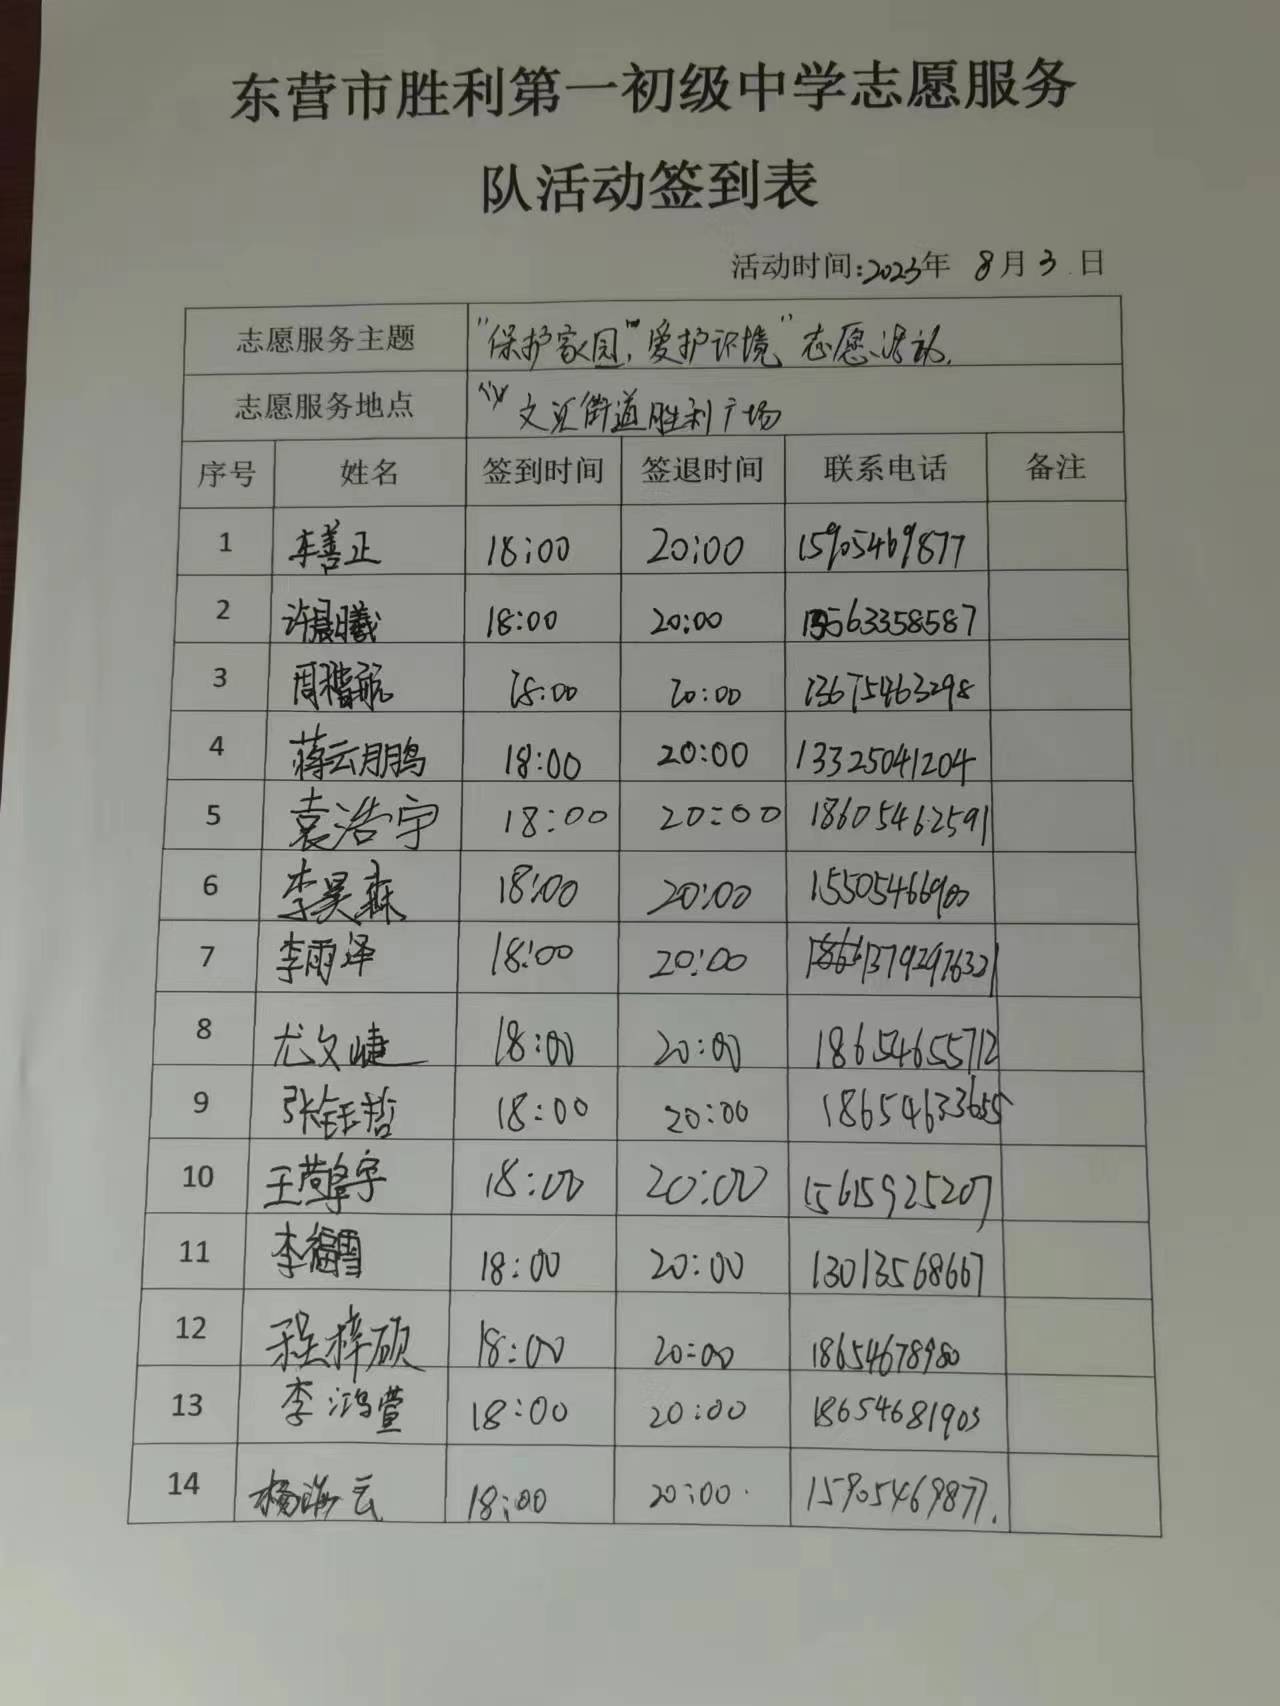 东营市胜利第一初级中学志愿服务
队活动签到表
活动时间:2023年 8月3日
志愿服务主题 "保护家园,爱护环境"志愿活动
志愿服务地点 文汇街道胜利广场
序号 姓名 签到时间 签退时间 联系电话 备注
1 车善正 18:00 20:00 15905469877
2 许晨曦 18:00 20:00 13563358587
3 周楷航 18:00 20:00 13675463298
4 蒋云鹏 18:00 20:00 13325041204
5 袁浩宇 18:00 20:00 18605462591
6 李昊森 18:00 20:00 15505466900
7 李雨泽 18:00 20:00 13792976321
8 尤文婕 18:00 20:00 18654655712
9 张钰哲 18:00 20:00 18654633655
10 王 宇 18:00 20:00 15615925207
11 李 雪 18:00 20:00 13013568667
12 程梓硕 18:00 20:00 18654678980
13 李鸿萱 18:00 20:00 18654681903
14 杨海云 18:00 20:00 15905469877.